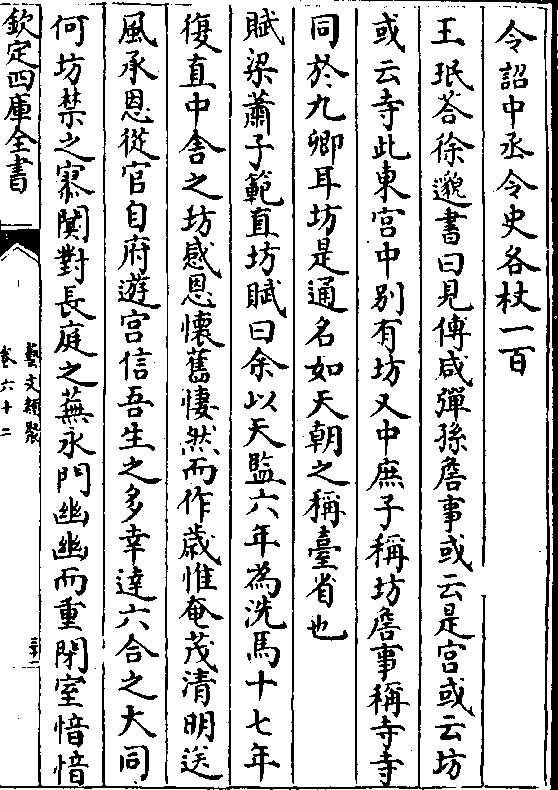 令詔中丞令史各杖一百
王珉答徐邈書曰見傅咸彈孫詹事或云是宫或云坊
或云寺此東宫中别有坊又中庶子稱坊詹事稱寺寺
同於九卿耳坊是通名如天朝之稱臺省也
賦梁蕭子範直坊賦曰余以天監六年為洗馬十七年
復直中舍之坊感恩懷舊悽然而作歳惟奄茂清明送
風承恩從官自府遊宫信吾生之多幸達六合之大同
何坊禁之寥闃對長庭之蕪永門幽幽而重閉室愔愔
欽定四庫全書
藝文類聚
卷六十二